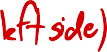 left side)